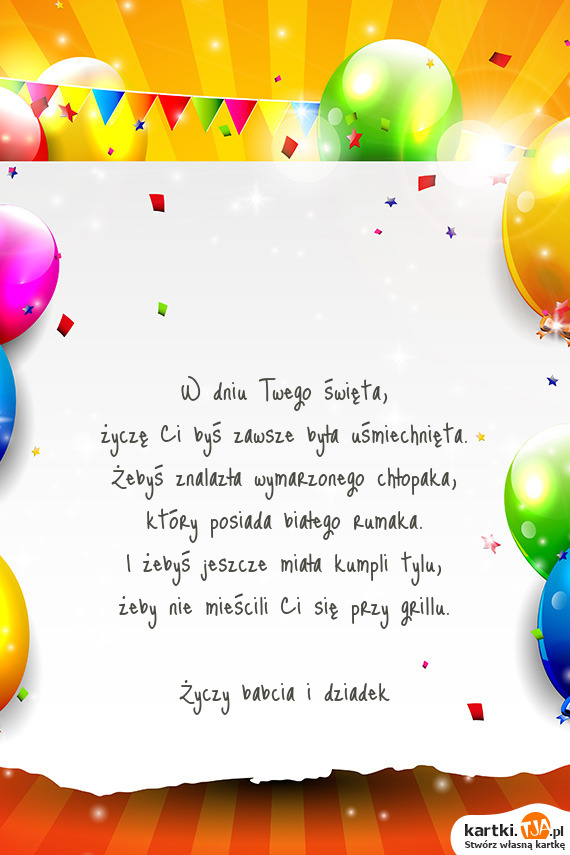 W dniu Twego święta,
życzę Ci byś zawsze była uśmiechnięta.
Żebyś znalazła wymarzonego chłopaka,
który posiada białego rumaka.
I żebyś jeszcze miała kumpli tylu,
żeby nie mieścili Ci się przy grillu.
Życzy babcia i dziadek
kartki.TJA.pl
Stwórz własną kartkę